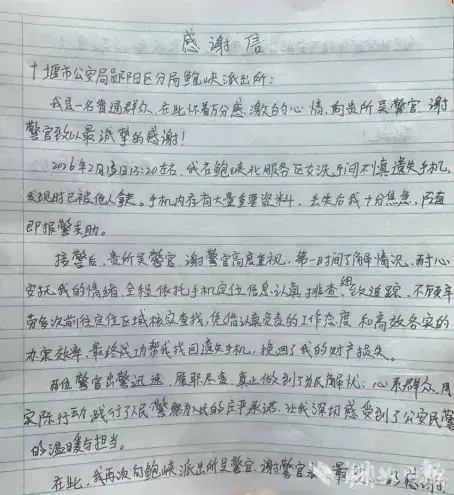 感谢信
十堰市公安局郧阳区分局鲍峡派出所：
我是一名普通群众，在此怀着万分感激的心情，向贵所吴警官、谢
警官致以最诚挚的感谢！
2026年2月13日13:20左右，我在鲍峡北服务区女洗手间不慎遗失手机，
发现时已被他人拿走。手机内存有大量重要资料，丢失后我十分焦急，
即报警求助。
接警后，贵所吴警官、谢警官高度重视，第一时间了解情况、耐心
安抚我的情绪，全程依托手机定位信息认真排查、细致追踪，不厌辛
劳多次前往定位区域核实查找，凭借认真负责的工作态度和高效务实的
办案效率，最终成功帮我找回遗失手机，挽回了我的财产损失。
两位警官出警迅速、履职尽责，真正做到了为民解忧、心系群众，用
实际行动践行了人民警察为人民的庄严承诺，让我深切感受到了公安民警
的温暖与担当。
在此，我再次向鲍峡派出所吴警官、谢警官 最 感谢
湖北日报